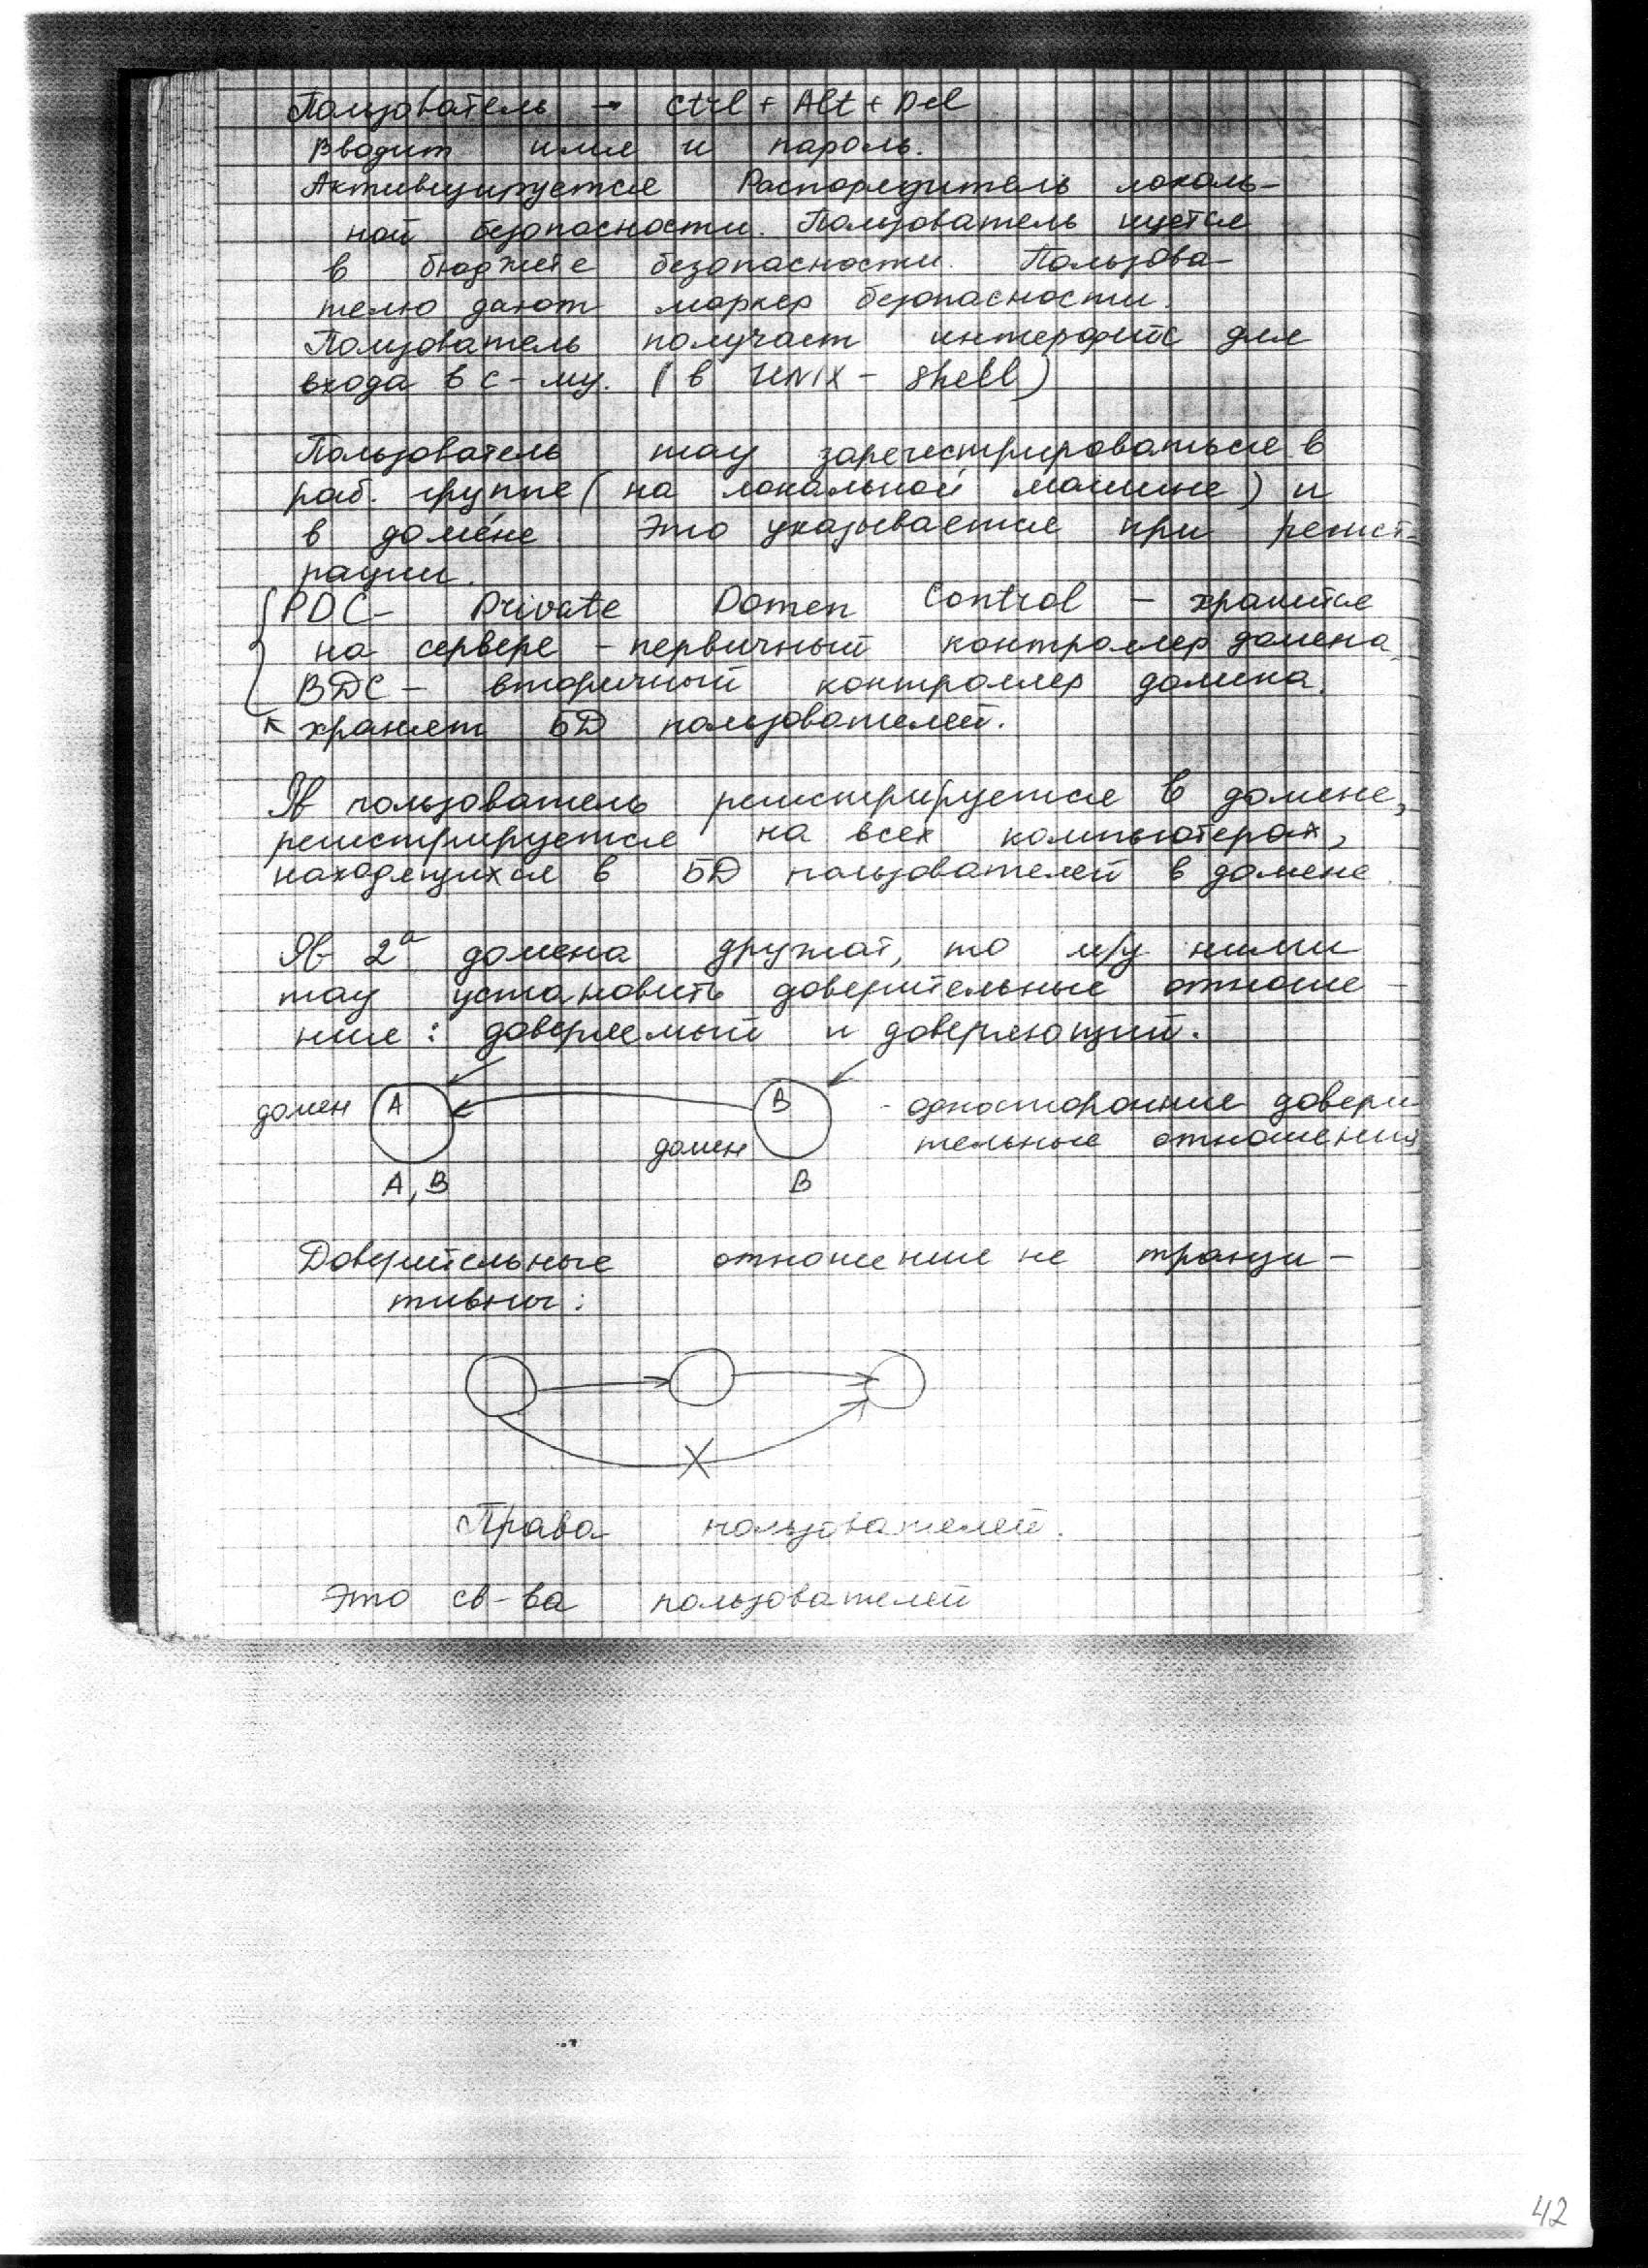 Пользователь → Ctrl + Alt + Del
Вводит имя и пароль.
Активизируется Распорядитель локаль-
ной безопасности. Пользователь ищется
в бюджете безопасности. Пользова-
телю дают маркер безопасности.
Пользователь получает интерфейс для
входа в с-му. (в UNIX - shell)
Пользователь может зарегистрироваться в
раб. группе (на локальной машине) и
в домене. Это указывается при регист-
рации.
PDC - Private Domen Control - хранится
на сервере - первичный контроллер домена.
BDC - вторичный контроллер домена.
хранят БД пользователей.
пользователь регистрируется в домене,
регистрируется на всех компьютерах,
находящихся в БД пользователей в домене.
2а домена дружат, то м/у ними
установить доверительные отноше-
ния: доверяемый и доверяющий.
домен A B - односторонние довери
домен тельные отношения
A, B B
Доверительные отношения не транзи-
тивны:
X
Права пользователей.
Это св-ва пользователей
42